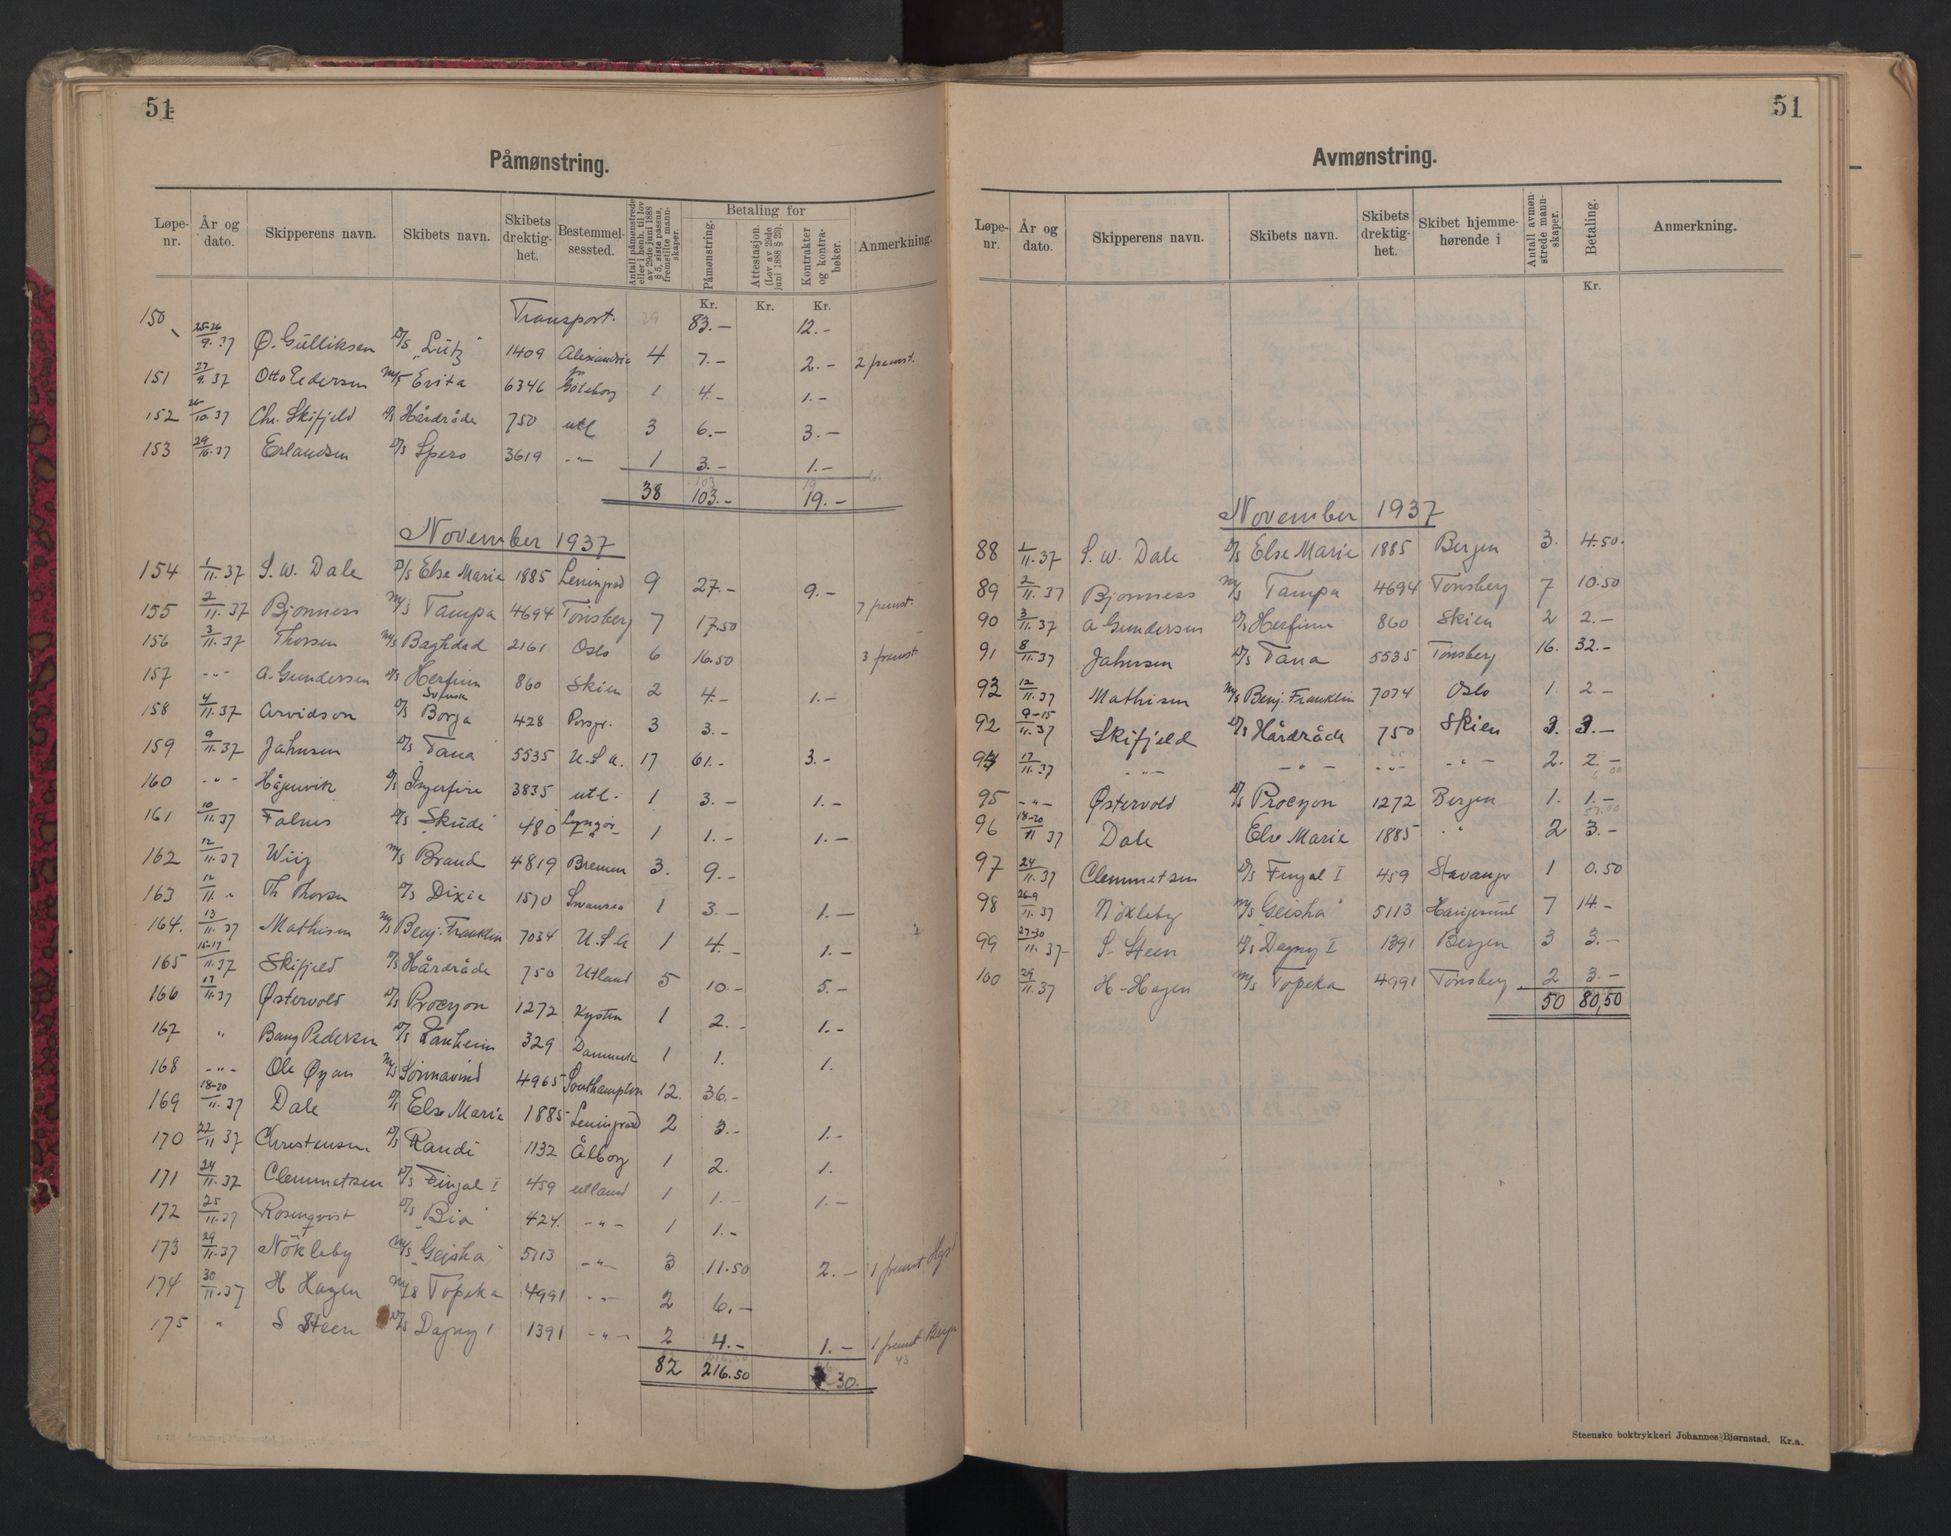 51
Påmønstring.
Løpe-nr. | År og dato. | Skipperens navn. | Skibets navn. | Skibets drektig-het. | Bestemmel-sessted. | Antall påmønstrede eller i henh. til lov av 29de juni 1888 § 5, siste passus, fremstilte mann-skaper. | Betaling for | Påmønstring. | Attestasjon. (Lov av 29de juni 1888 § 29). | Kontrakter og kontra-bøker. | Anmerkning.
Kr. Kr. Kr.
Transport. 29 83.- 12.-
150 25-26/9.37 Ø. Gulliksen D/S "Lutz" 1409 Alexandria 4 7.- 2.- 2 fremst.
151 27/9.37 Otto Pedersen M/S Evita 6346 Göteborg 1 4.- 1.-
152 26/10.37 Chr. Skifjeld D/S Hårdråde 750 utl 3 6.- 3.-
153 29/10.37 Erlandsen D/S Spero 3619 -"- 1 3.- 1.-
38 103.- 19.-
November 1937
154 1/11.37 S. W. Dale D/S Else Marie 1885 Leningrad 9 27.- 9.-
155 2/11.37 Bjønness M/S Tampa 4694 Tönsberg 7 17.50 7 fremst.
156 3/11.37 Thorsen M/S Baghdad 2161 Oslo 6 16.50 3 fremst
157 -"- A. Gundersen D/S Herfinn 860 Skien 2 4.- 1.-
158 4/11.37 Arvidson Svensk D/S Borga 428 Porsgr. 3 3.-
159 9/11.37 Jahnsen D/S "Tana" 5535 U.S.A. 17 61.- 3.-
160 -"- Hågenvik D/S Ingerfire 3835 utl. 1 3.- 1.-
161 10/11.37 Falnes D/S "Skudi" 480 Lyngör 1 1.- 1.-
162 12/11.37 Wiig M/S Brand 4819 Bremen 3. 9.-
163 12/11. " Th Thorsen D/S Dixie 1570 Swansea 1 3.- 1.-
164. 13/11.37 Mathisen M/S Benj. Franklin 7034 U.S.A 1 4.- 1.-
165 15-17/11.37 Skifjeld D/S Hårdråde 750 Utland 5 10.- 5.-
166 17/11.37 Østervold D/S Procyon 1272 Kysten 1 2.- 1.-
167 " Bang Pedersen D/S Ranheim 329 Danmark 1 1. 1.
168 -"- Ole Øyan M/S Sørinavind 4965 Southampton 12. 36.-
169 18-20/11.37 Dale D/S Else Marie 1885 Leningrad 2 3.- 1.-
170 22/11 37 Christensen D/S Randi 1132 Ålborg 1 2. 1.
171 24/11.37 Clemmetsen D/S Fingal I 459 utland 1 1.- 1.-
172 25/11.37 Rosenqvist D/S "Bia" 424. -"- 1 1.-
173 29/11.37 Nökleby M/S "Geisha" 5113 -"- 3 11.50 2.- 1 fremst Hgsd
174 30/11.37 H Hagen M/S Topeka 4991 -"- 2 6.-
175 " S Steen D/S Dagny I 1391 -"- 2 4.- 1.- 1 fremst Bergen
82 216.50 30.-
51
Avmønstring.
Løpe-nr. | År og dato. | Skipperens navn. | Skibets navn. | Skibets drektig-het. | Skibet hjemme-hørende i | Antall avmøn-strede mann-skaper. | Betaling. | Anmerkning.
Kr.
November 1937
88 1/11.37 S. W. Dale D/S Else Marie 1885 Bergen 3. 4.50.
89 2/11.37 Bjønness M/S Tampa 4694 Tönsberg 7 10.50
90 3/11.37 A Gundersen D/S Herfinn 860 Skien 2 2.-
91 8/11.37 Jahnsen D/S Tana 5535 Tönsberg 16. 32.-
93 12/11.37 Mathisen M/S Benj. Franklin 7034 Oslo 1. 2.-
92 9-15/11.37 Skifjeld D/S Hårdråde 750 Skien 3. 3.-
94 17/11.37 -"- -"- -"- -"- 2. 2.-
95 -"- Østervold D/S Procyon 1272 Bergen 1. 1.-
96 18-20/11 37 Dale Else Marie 1885 -"- 2 3.-
97 24/11.37 Clemmetsen D/S Fingal I 459 Stavanger 1 0.50
98 26-9/11.37 Nökleby M/S "Geisha" 5113 Haugesund 7 14.-
99 27-30/11.37 S. Steen D/S Dagny I 1391 Bergen 3 3.-
100 29/11.37 H. Hagen M/S Topeka 4991 Tönsberg 2 3.-
50 80,50
Steenske boktrykkeri Johannes Bjørnstad. Kr.a.